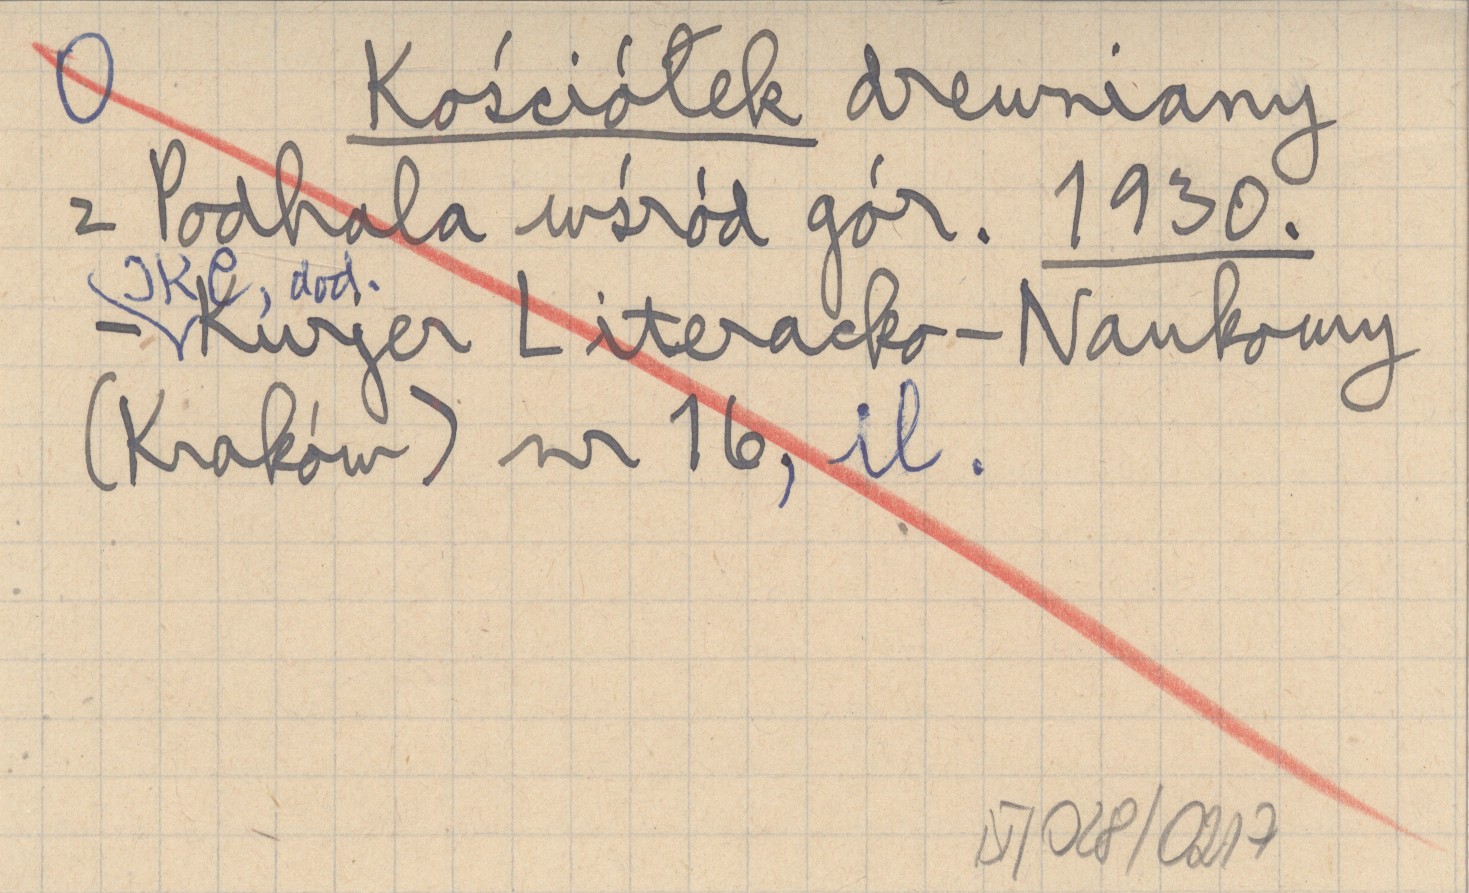 O Kościółek drewniany
z Podhala wśród gór. 1930.
IKC, dod.
- Kurjer Literacko-Naukowy
(Kraków) nr 16, il.
IV/028/0217